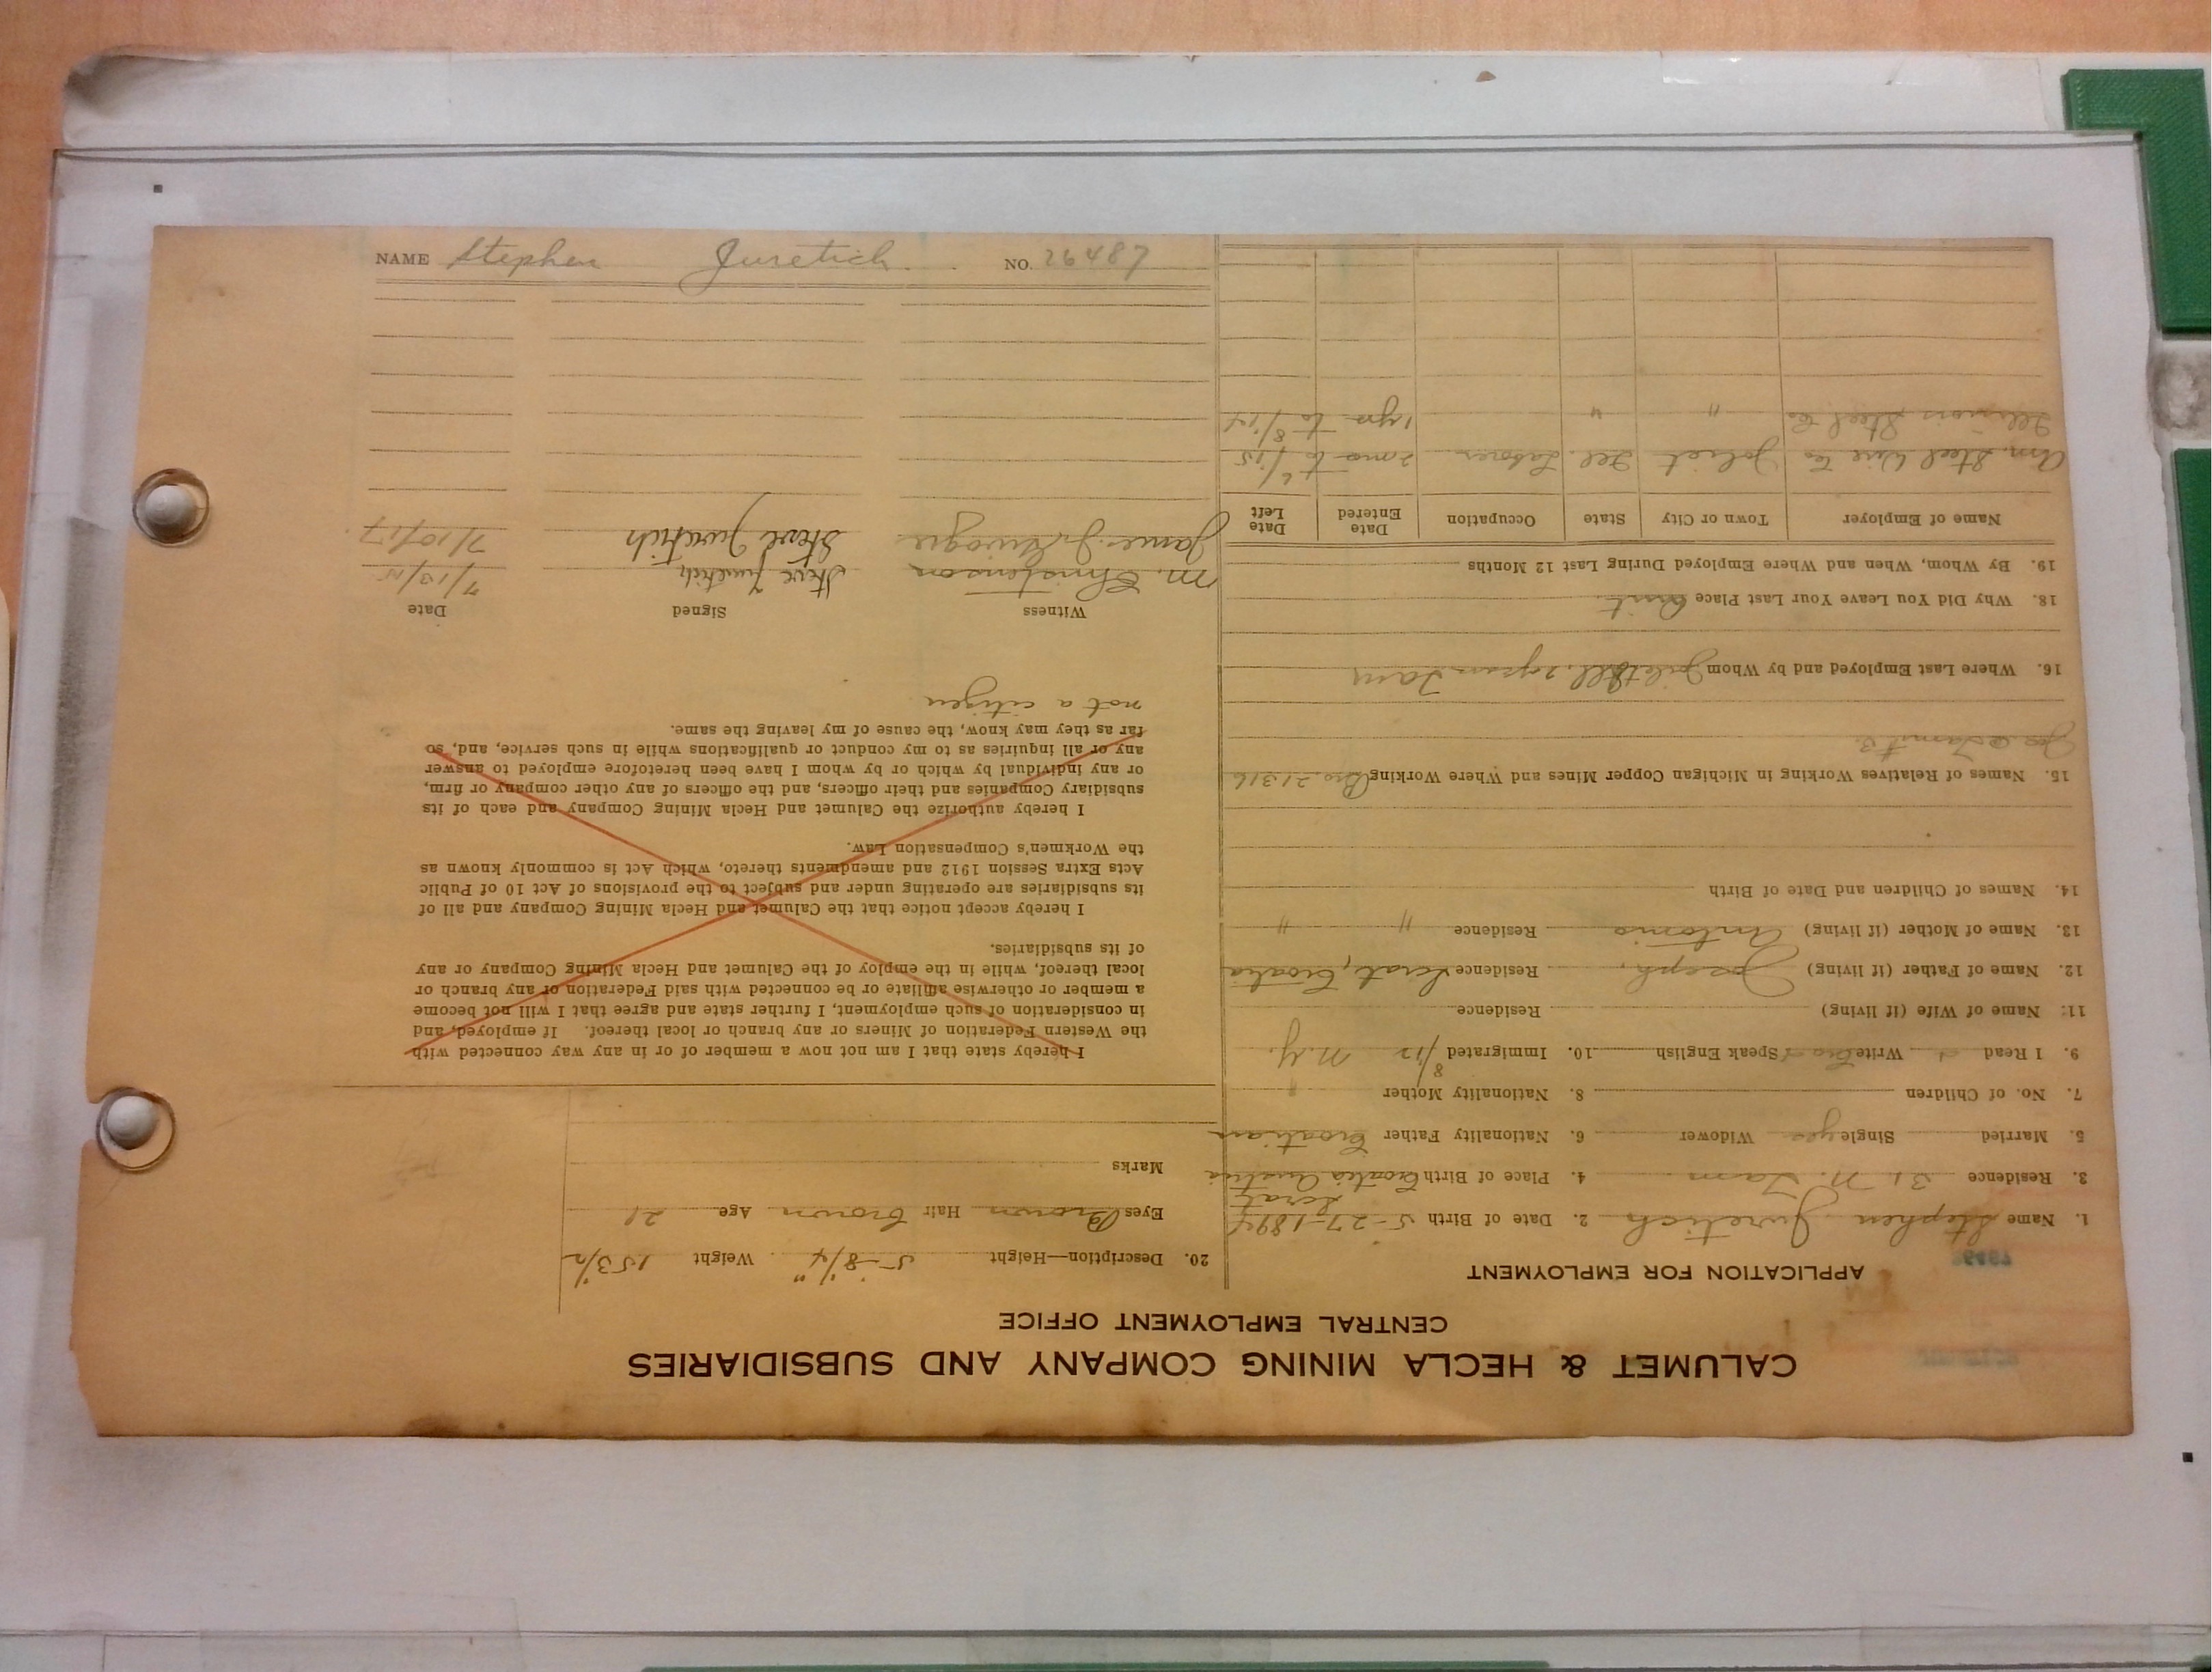 CALUMET & HECLA MINING COMPANY AND SUBSIDIARIES
CENTRAL EMPLOYMENT OFFICE
APPLICATION FOR EMPLOYMENT
1. Name Stephen Juretich 2. Date of Birth 5-27-1894
3. Residence 31 N. Tam 4. Place of Birth Croatia Austria
5. Married Single yes Widower 6. Nationality Father Croatian
7. No. of Children 8. Nationality Mother "
9. I Read Write Speak English 10. Immigrated 8/12 N.Y.
11. Name of Wife (if living) Residence
12. Name of Father (if living) Joseph, Residence Croatia
13. Name of Mother (if living) Antonia Residence " "
14. Names of Children and Date of Birth
15. Names of Relatives Working in Michigan Copper Mines and Where Working Bro. 21316
16. Where Last Employed and by Whom
18. Why Did You Leave Your Last Place Quit.
19. By Whom, When and Where Employed During Last 12 Months
Name of Employer Town or City State Occupation Date Entered Date Left
Am. Steel Wire Co Joliet Ill. Laborer 2 mo to 6/15
Illinois Steel Co " " 1 yr to 8/14
20. Description—Height 5-8 1/4" Weight 153 1/2
Eyes Brown Hair Brown Age 21
Marks
I hereby state that I am not now a member of or in any way connected with
the Western Federation of Miners or any branch or local thereof. If employed, and
in consideration of such employment, I further state and agree that I will not become
a member or otherwise affiliate or be connected with said Federation or any branch or
local thereof, while in the employ of the Calumet and Hecla Mining Company or any
of its subsidiaries.
I hereby accept notice that the Calumet and Hecla Mining Company and all of
its subsidiaries are operating under and subject to the provisions of Act 10 of Public
Acts Extra Session 1912 and amendments thereto, which Act is commonly known as
the Workmen's Compensation Law.
I hereby authorize the Calumet and Hecla Mining Company and each of its
subsidiary Companies and their officers, and the officers of any other company or firm,
or any individual by which or by whom I have been heretofore employed to answer
any or all inquiries as to my conduct or qualifications while in such service, and, so
far as they may know, the cause of my leaving the same.
not a citizen
Witness Signed Date
M. Christenson Steve Juretich 7/13/15
James Steve Juretich 7/10/17
NAME Stephen Juretich. NO. 26487